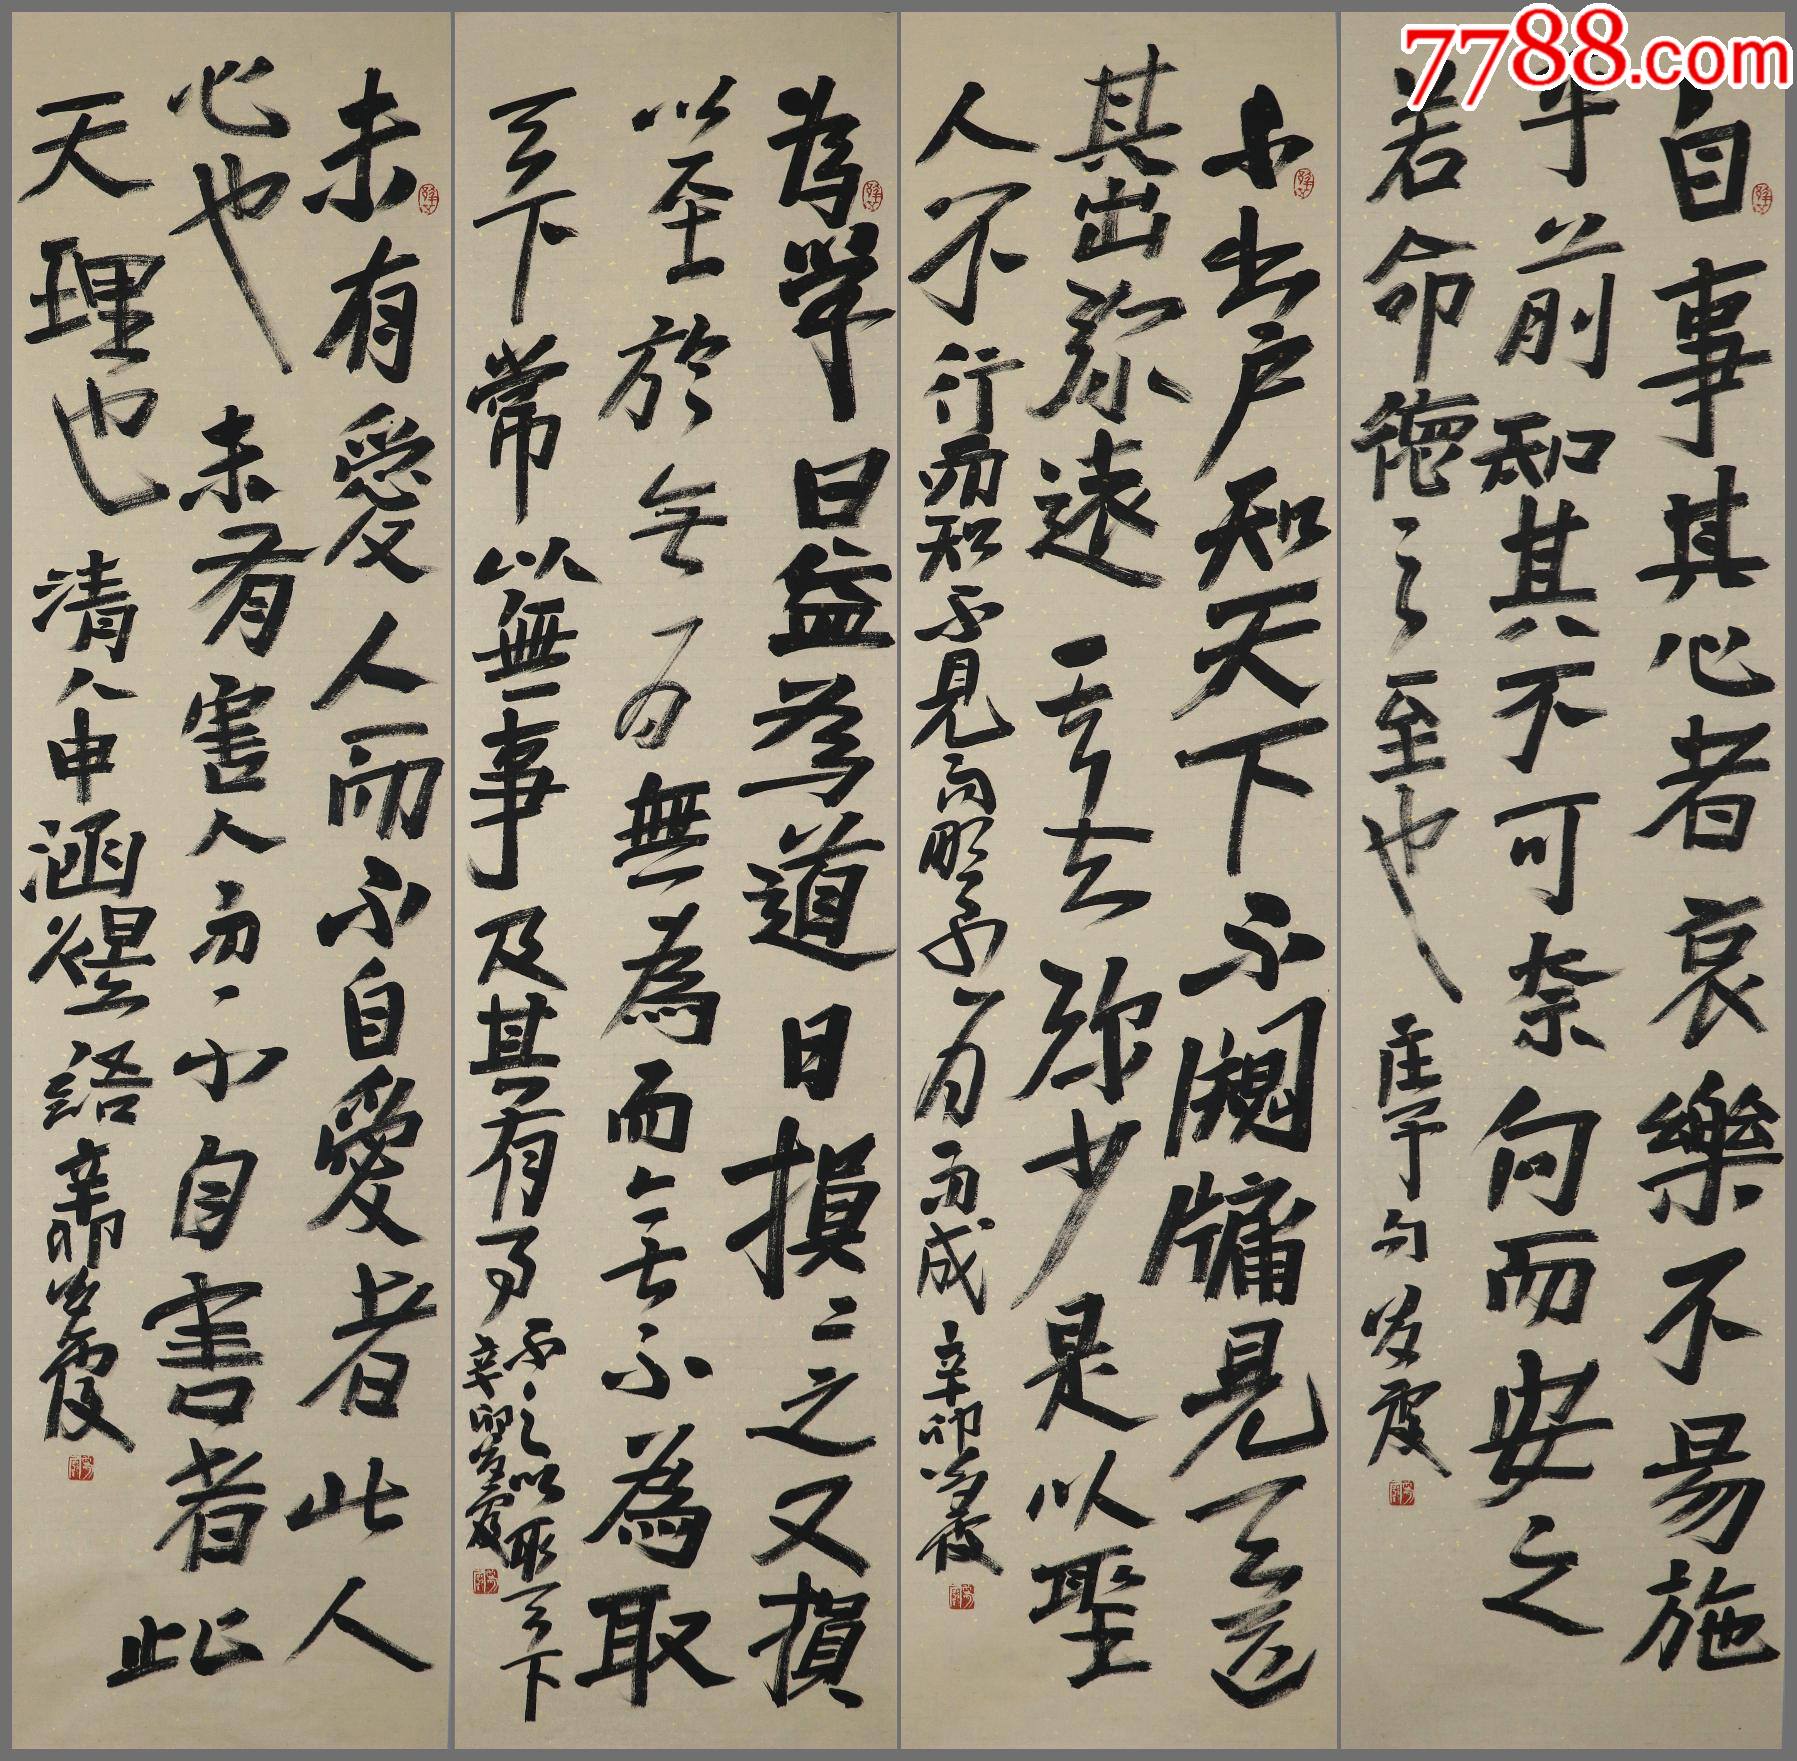 7788.com
自事其心者哀樂不易施
乎前知其不可奈何而安之
若命德之至也 庄子句
不出户知天下不闚牖見天道
其出弥遠 弥少是以聖
人不行而知不見而明不为而成 辛卯
為學日益為道日損二之又損
以至於无为無為而无不為取
天下常以無事及其有事
不足以取天下
辛卯
未有愛人而不自愛者此人
心也未有害人而不自害者此
天理也 清人申涵煜語 辛卯